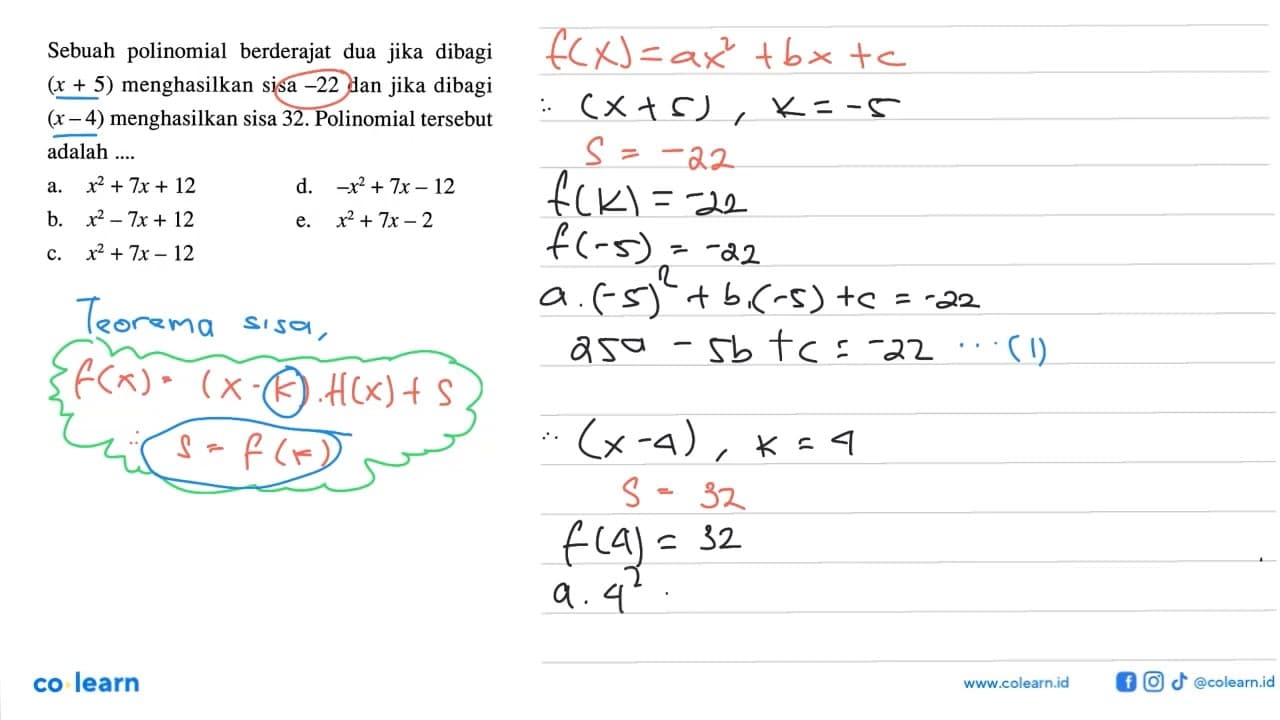 Sebuah polinomial berderajat dua jika dibagi
(x + 5) menghasilkan sisa –22 dan jika dibagi
(x – 4) menghasilkan sisa 32. Polinomial tersebut
adalah ....
a. x² + 7x + 12
b. x² – 7x + 12
c. x² + 7x – 12
d. –x² + 7x – 12
e. x² + 7x – 2
Teorema sisa,
f(x) = (x - k) . H(x) + S
∴ S = f(k)
f(x) = ax² + bx + c
∴ (x + 5) , k = -5
S = -22
f(k) = -22
f(-5) = -22
a . (-5)² + b.(-5) + c = -22
25a - 5b + c = -22 ... (1)
∴ (x - 4) , k = 4
S = 32
f(4) = 32
a . 4²
co learn
www.colearn.id
@colearn.id